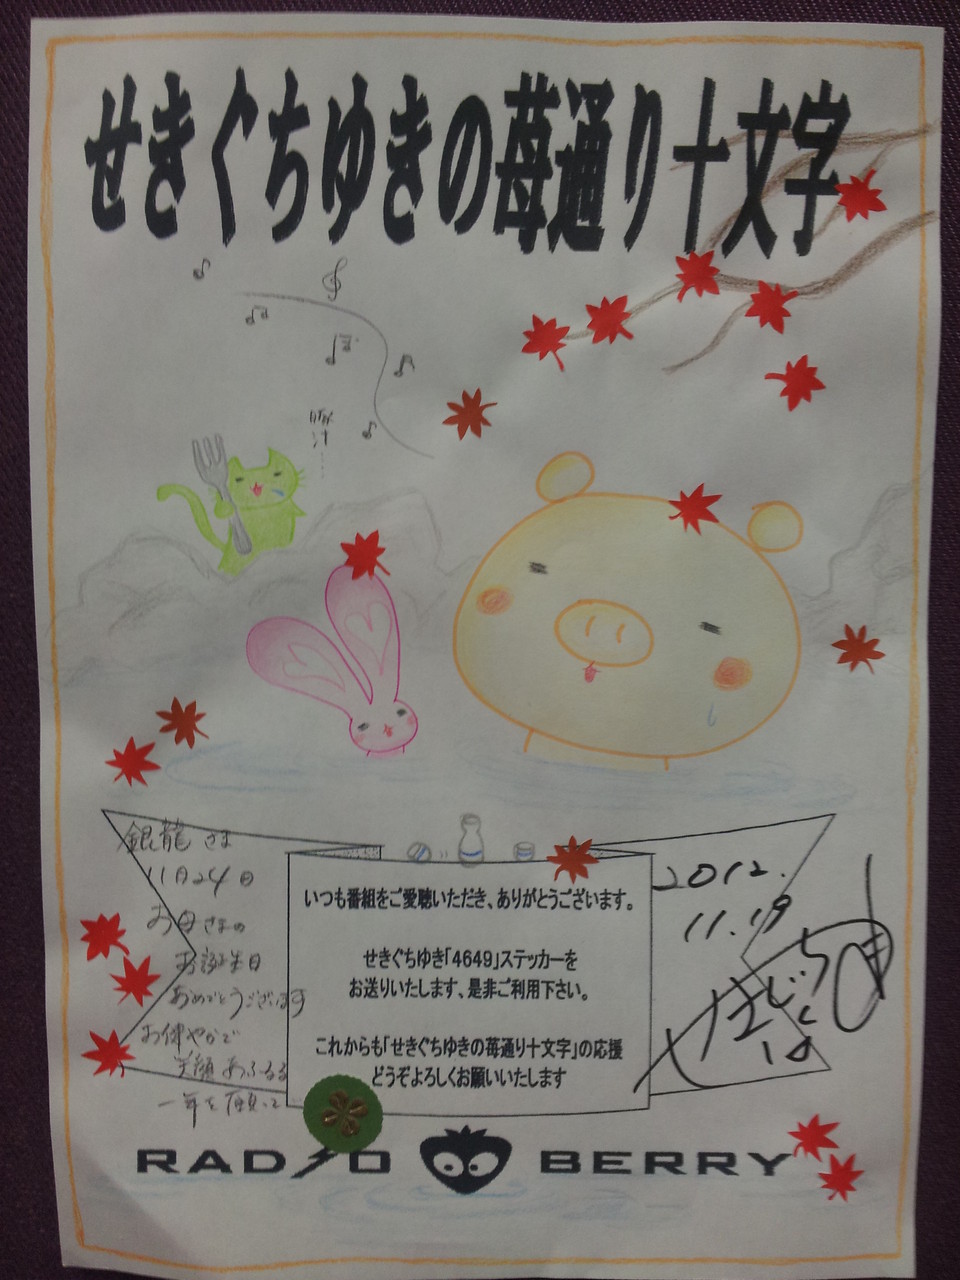 せきぐちゆきの苺通り十文字
豚汁……
銀龍さま
11月24日
お母さまの
お誕生日
おめでとうございます
お健やかで
笑顔あふるる
一年を願って…
いつも番組をご愛聴いただき、ありがとうございます。
せきぐちゆき「4649」ステッカーを
お送りいたします、是非ご利用下さい。
これからも「せきぐちゆきの苺通り十文字」の応援
どうぞよろしくお願いいたします
2012.
11.19
RADIO BERRY